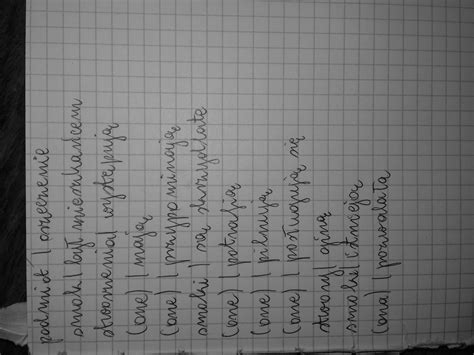 podmiot | orzeczenie
smok | był mieszkańcem
stworzenia | występują
(one) | mają
(one) | przypominają
smoki | są skrzydlate
(one) | potrafią
(one) | pilnują
(one) | posługują się
stwory | giną
smoki | istnieją
(ona) | pozwalała